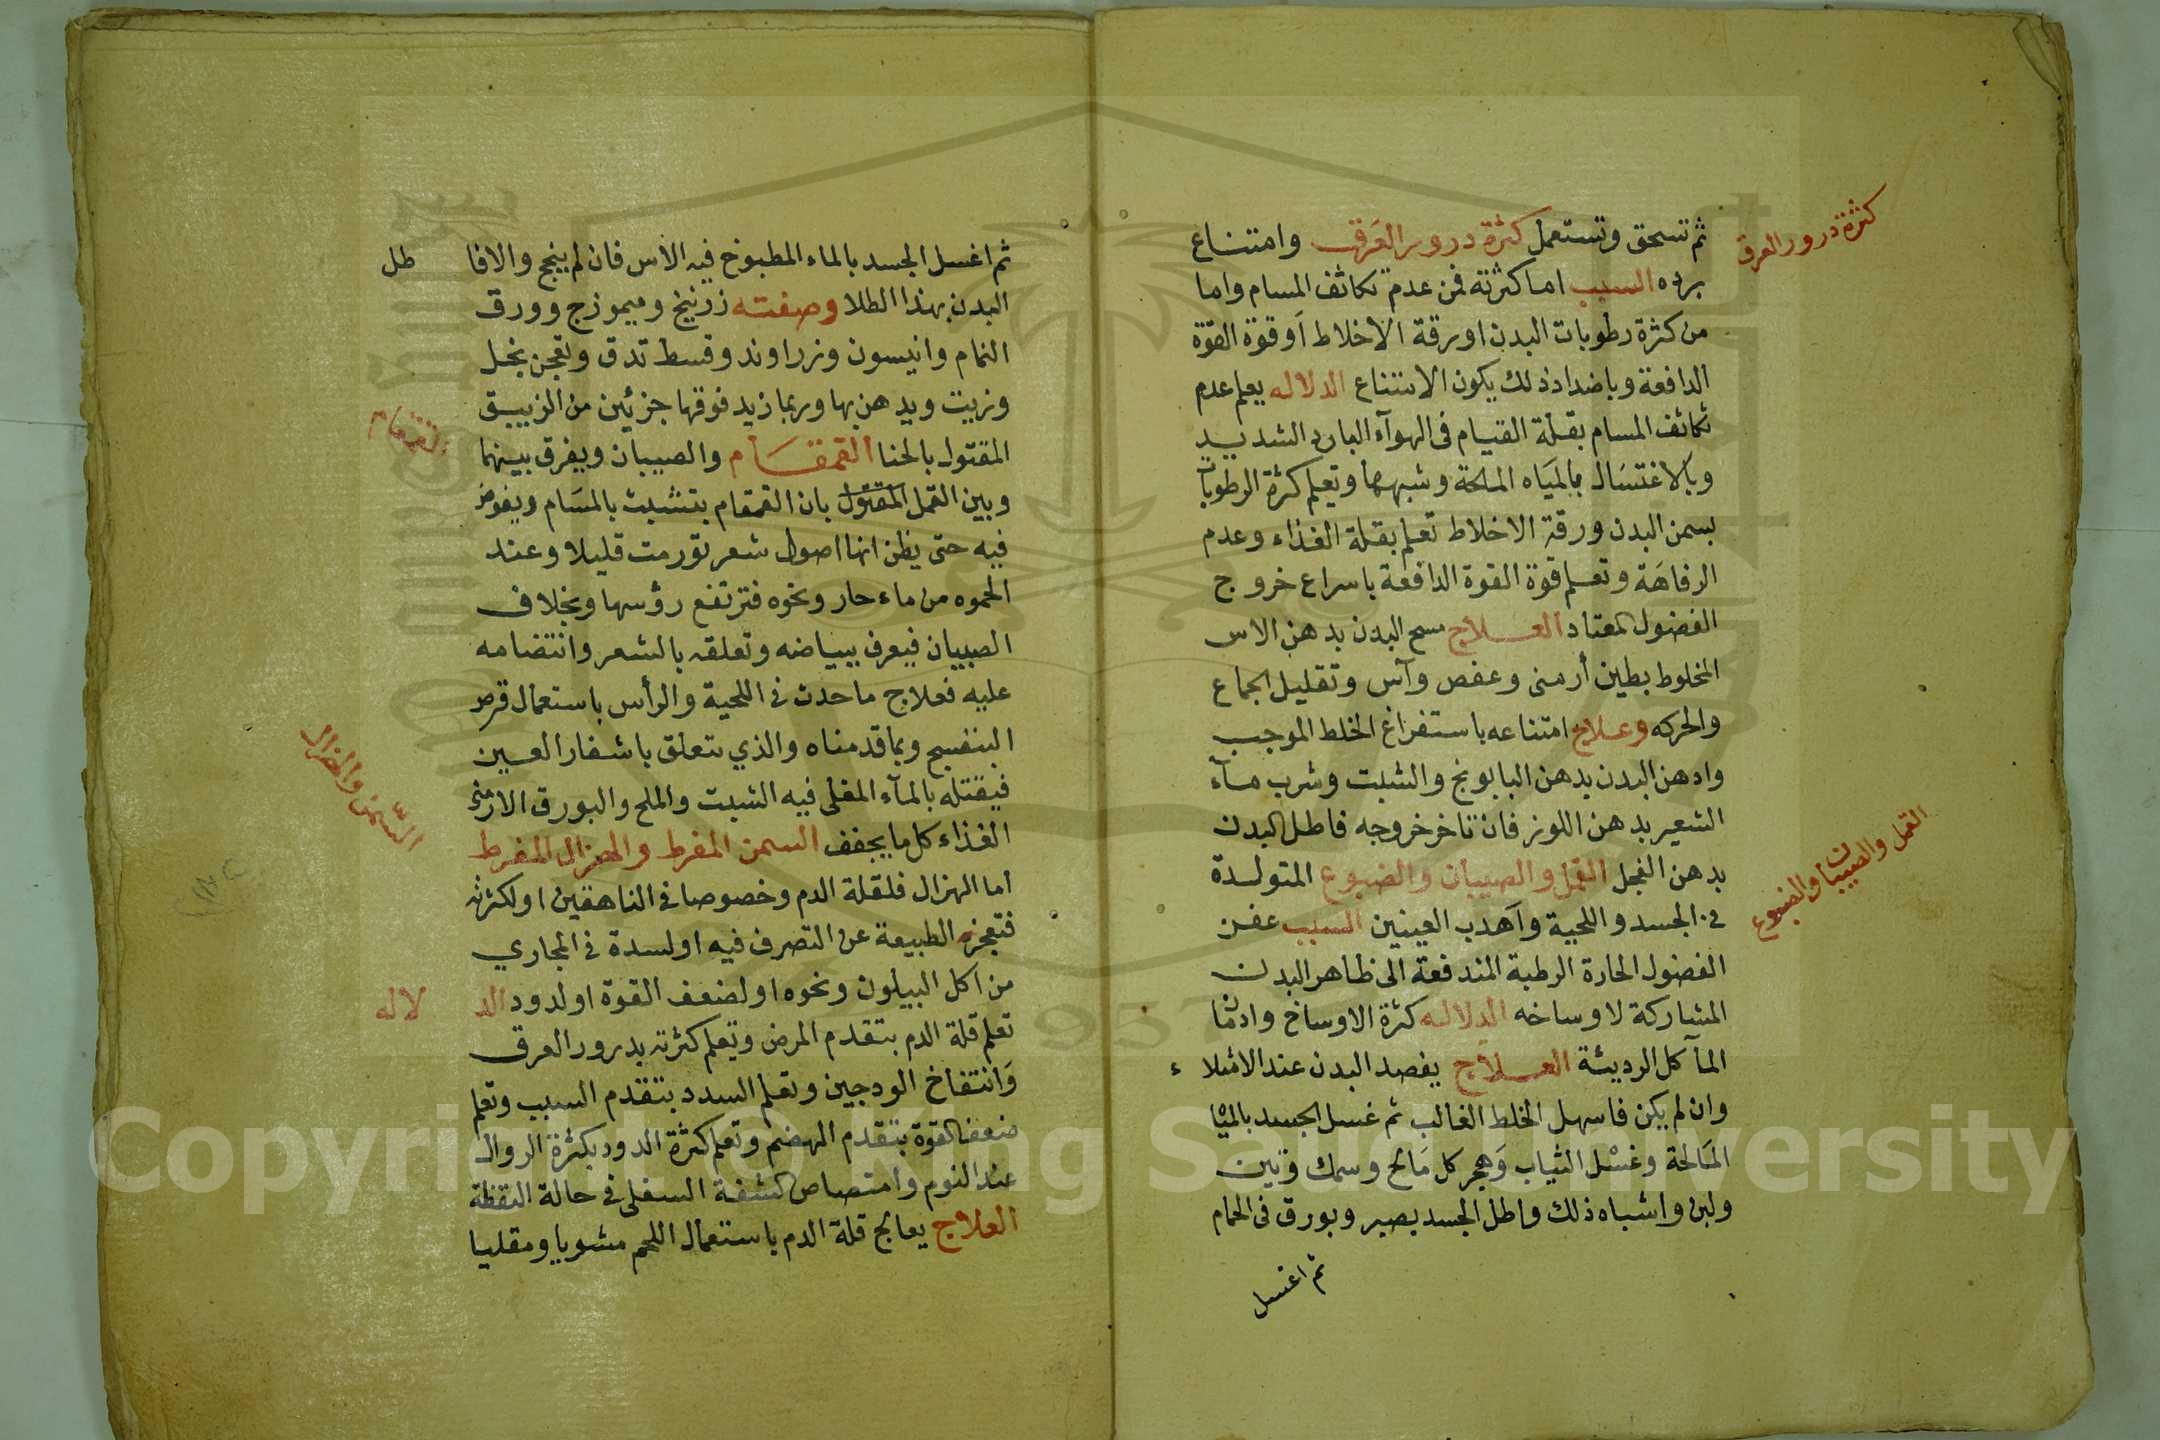 كثرة درور العرق
ثم تسحق وتستعمل كثرة درور العرق وامتناع
برده السبب اما كثرته فمن عدم تكاثف المسام واما
من كثرة رطوبات البدن او رقة الاخلاط أو قوة القوة
الدافعة وباضداد ذلك يكون الامتناع الدلاله يعلم عدم
تكاثف المسام بقلة القيام في الهوآء البارد الشديد
وبالاغتسال بالمياه المالحة وشبهها وتعلم كثرة الرطوبات
بسمن البدن ورقة الاخلاط تعلم بقلة الغذاء وعدم
الرفاهة وتعلم قوة القوة الدافعة باسراع خروج
الفضول المعتاد العلاج مسح البدن بدهن الاس
المخلوط بطين أرمني وعفص وآس وتقليل الجماع
والحركه وعلاج امتناعه باستفراغ الخلط الموجب
وادهن البدن بدهن البابونج والشبت وشرب مآء
الشعير بدهن اللوز فان تاخر خروجه فاطل البدن
بدهن الفجل القمل والصيبان والضبوع المتولدة
القمل والصيبان والضبوع
في الجسد واللحية وأهدب العينين السبب عفن
الفضول الحارة الرطبة المندفعة الى ظاهر البدن
المشاركة لاوساخه الدلاله كثرة الاوساخ وادمان
المآكل الرديئة العلاج يفصد البدن عند الامتلاء
وان لم يكن فاسهل الخلط الغالب ثم غسل الجسد بالمياه
المالحة وغسل الثياب وهجر كل مالح وسمك وتين
ولبن واشباه ذلك واطل الجسد بصبر وبورق في الحمام
ثم اغسل
ثم اغسل الجسد بالماء المطبوخ فيه الآس فان لم ينجح والا فا طل
البدن بهذا الطلا وصفته زرنيخ وميموزج وورق
النمام وانيسون وزراوند وقسط تدق وتعجن بخل
وزيت ويدهن بها وربما زيد فوقها جزئين من الزيبق
المقتول بالحنا القمقام والصيبان ويفرق بينهما
القمقام
وبين القمل المقتول بان القمقام يتشبث بالمسام ويغوض
فيه حتى يظن انها اصول شعر تورمت قليلا وعند
الحموه من ماء حار ونحوه فترتفع رؤسها وبخلاف
الصيبان فيعرف ببياضه وتعلقه بالشعر وانتضامه
عليه فعلاج ما حدث في اللحية والرأس باستعمال قرص
البنفسج وبما قدمناه والذي يتعلق باشفار العين
فيقتله بالمآء المغلى فيه الشبت والملح والبورق الارمني
الغذاء كل ما يجفف السمن المفرط والهزال المفرط
السمن والهزال
اما الهزال فلقلة الدم وخصوصا في الناهقين او لكثرته
فتعجز الطبيعة عن التصرف فيه او لسدة في المجاري
من اكل البيلون ونحوه او لضعف القوة او لدود الد لاله
تعلم قلة الدم بتقدم المرض وتعلم كثرته بدرور العرق
وانتفاخ الودجين وتعلم السدد بتقدم السبب وتعلم
ضعف القوة بتقدم الهضم وتعلم كثرة الدود بكثرة الروال
عند النوم وامتصاص الشفة السفلى في حالة اليقظة
العلاج يعالج قلة الدم باستعمال اللحم مشويا ومقليا
Copyright © King Saud University
1957